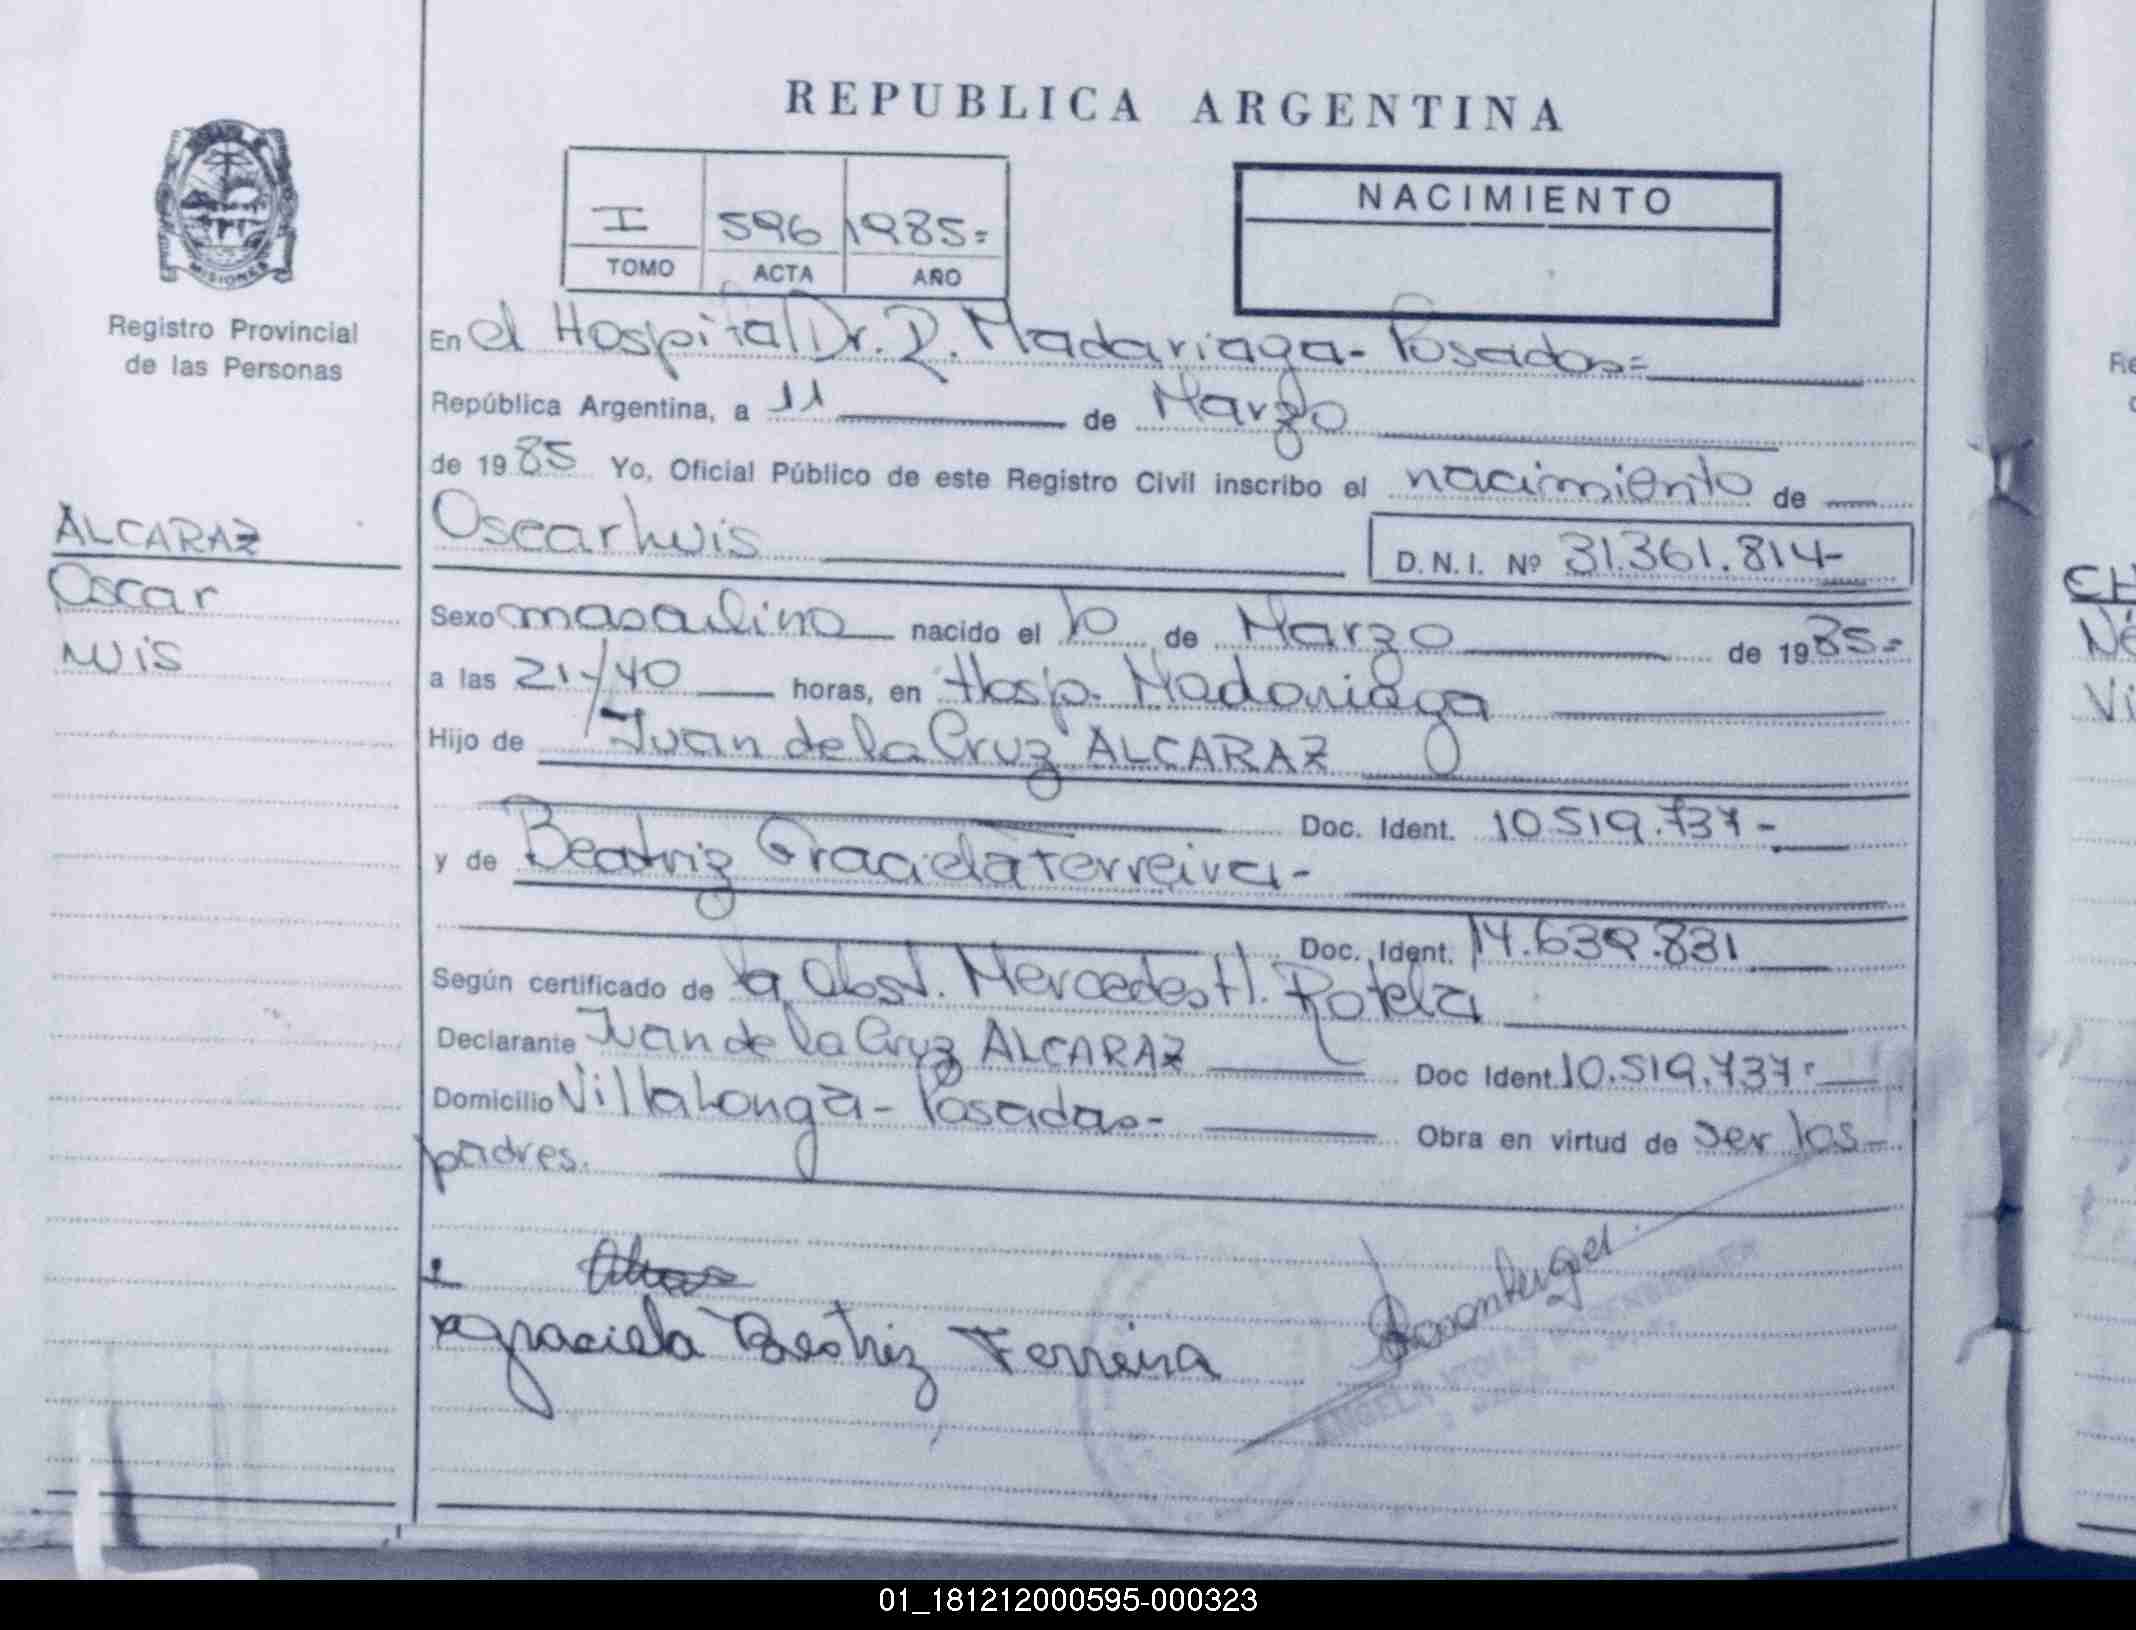 REPUBLICA ARGENTINA
MISIONES
Registro Provincial
de las Personas
I 596 1985=
TOMO ACTA AÑO
NACIMIENTO
En el Hospital Dr. R. Madariaga - Posadas=
República Argentina, a 11 de Marzo
de 1985 Yo, Oficial Público de este Registro Civil inscribo el nacimiento de
ALCARAZ
Oscar
Luis
Oscar Luis
D.N.I. Nº 31.361.814-
Sexo masculino nacido el 10 de Marzo de 1985=
a las 21-40 horas, en Hosp. Madariaga
Hijo de Juan de la Cruz ALCARAZ
Doc. Ident. 10.519.737-
y de Beatriz Graciela Ferreira-
Doc. Ident. 14.639.831
Según certificado de la Obst. Mercedes H. Rotela
Declarante Juan de la Cruz ALCARAZ Doc Ident. 10.519.737-
Domicilio Villa Longa - Posadas- Obra en virtud de ser los
padres.
Graciela Beatriz Ferreira
ANGELA
01_181212000595-000323
CH
Vi